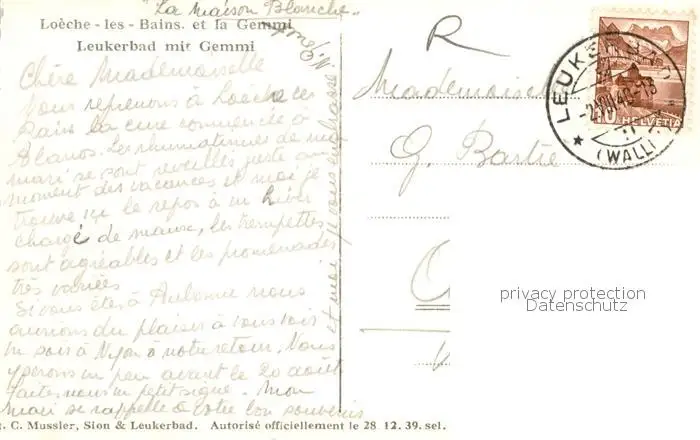 "La Maison Blanche"
Loèche-les-Bains. et la Gemmi
Leukerbad mit Gemmi
Chère Mademoiselle
nous reprenons à Loèche les
Bains la cure commencée à
Les rhumatismes de mon
mari se sont réveillés juste au
moment des vacances, et moi je
trouve ici le repos à un hiver
chargé de maux, les trempettes
sont agréables et les promenades
très variées
Si vous êtes à Aubonne nous
aurions du plaisir à vous voir
un soir à Nyon à notre retour. Nous
y serons un peu avant le 20 août
faites nous un petit signe. Mon
mari se rappelle à votre bon souvenir
et moi je vous embrasse
R
Mademoiselle
G.
LEUKERBAD
(WALLIS)
10 HELVETIA
privacy protection
Datenschutz
t. C. Mussler, Sion & Leukerbad. Autorisé officiellement le 28 12. 39. sel.